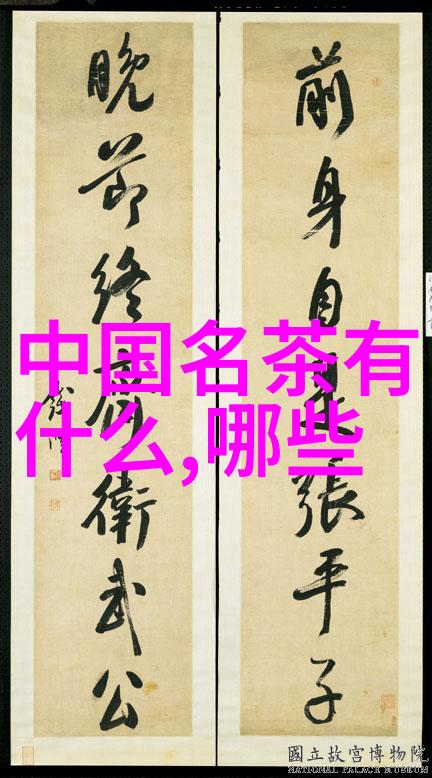 前身自是張平子
晚節終爲衛武公
中国名茶有
什么,哪些
國立故宮博物院
NATIONAL PALACE MUSEUM